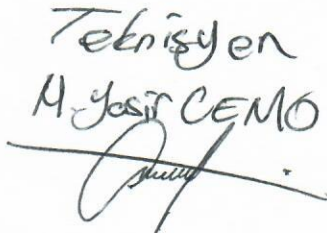 Teknisyen
M. Yasir CEMO